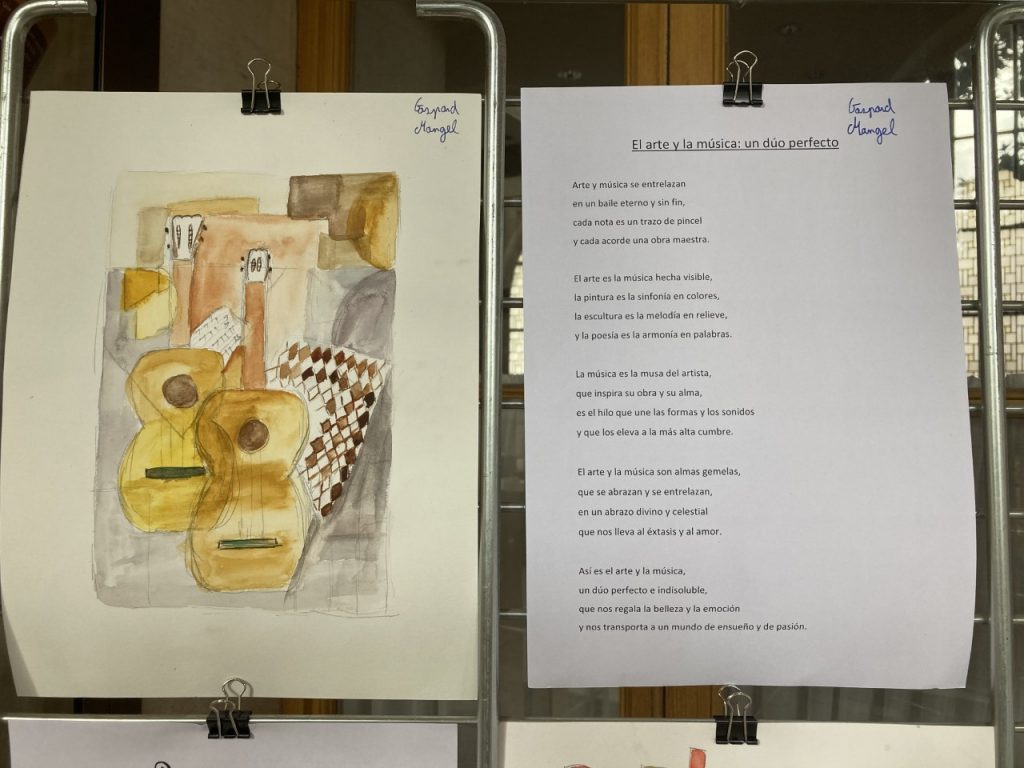 Gaspard
Mangel
Gaspard
Mangel
El arte y la música: un dúo perfecto
Arte y música se entrelazan
en un baile eterno y sin fin,
cada nota es un trazo de pincel
y cada acorde una obra maestra.
El arte es la música hecha visible,
la pintura es la sinfonía en colores,
la escultura es la melodía en relieve,
y la poesía es la armonía en palabras.
La música es la musa del artista,
que inspira su obra y su alma,
es el hilo que une las formas y los sonidos
y que los eleva a la más alta cumbre.
El arte y la música son almas gemelas,
que se abrazan y se entrelazan,
en un abrazo divino y celestial
que nos lleva al éxtasis y al amor.
Así es el arte y la música,
un dúo perfecto e indisoluble,
que nos regala la belleza y la emoción
y nos transporta a un mundo de ensueño y de pasión.